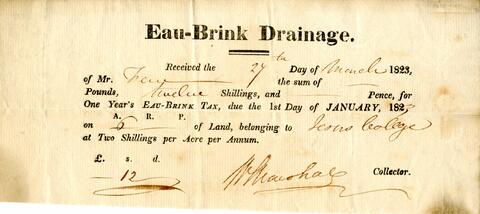 Eau-Brink Drainage.
Received the 27th Day of March 1823,
of Mr. the sum of
Pounds, Twelve Shillings, and Pence, for
One Year's EAU-BRINK TAX, due the 1st Day of JANUARY, 182
A. R. P.
on 6 of Land, belonging to Jesus College
at Two Shillings per Acre per Annum.
£ s. d.
12 Wm Marshall Collector.